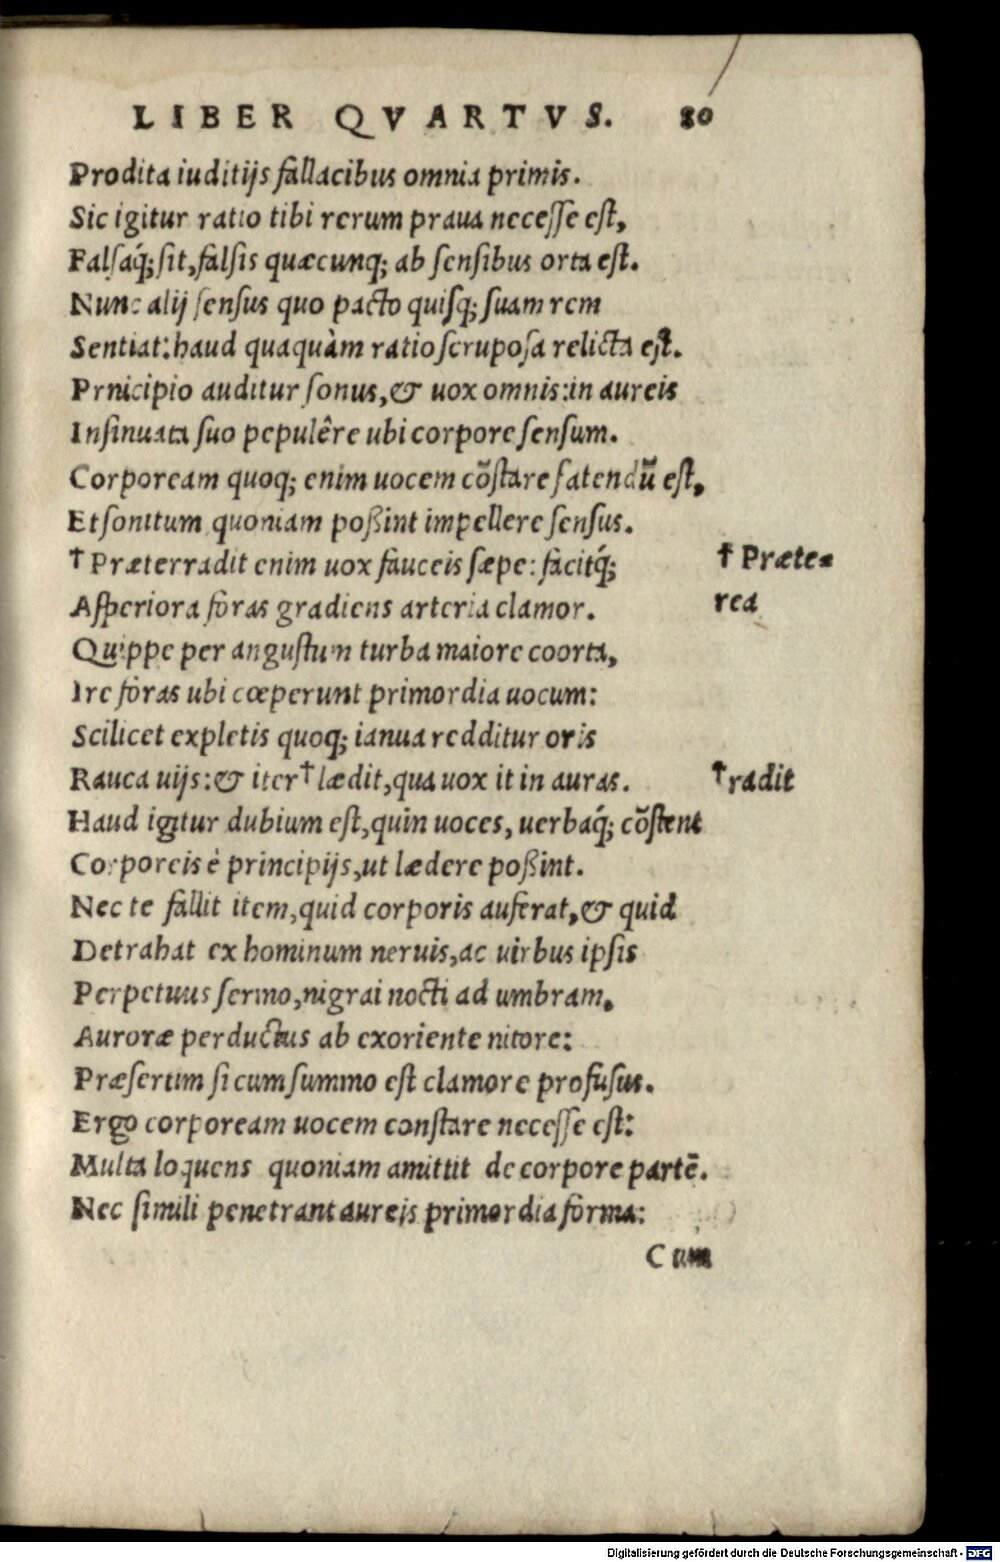 LIBER QVARTVS. 80
Prodita iuditijs fallacibus omnia primis.
Sic igitur ratio tibi rerum praua necesse est,
Falsaq́; sit, falsis quæcunq; ab sensibus orta est.
Nunc alij sensus quo pacto quisq; suam rem
Sentiat: haud quaquàm ratio scruposa relicta est.
Prnicipio auditur sonus, & uox omnis: in aureis
Insinuata suo pepulêre ubi corpore sensum.
Corpoream quoq; enim uocem cõstare fatendũ est,
Et sonitum quoniam possint impellere sensus.
† Præterradit enim uox fauceis sæpe: facitq́; † Præte-
Asperiora foras gradiens arteria clamor. rea
Quippe per angustum turba maiore coorta,
Ire foras ubi cœperunt primordia uocum:
Scilicet expletis quoq; ianua redditur oris
Rauca uijs: & iter † lædit, qua uox it in auras. † radit
Haud igitur dubium est, quin uoces, uerbaq́; cõstent
Corporeis è principijs, ut lædere possint.
Nec te fallit item, quid corporis auferat, & quid
Detrahat ex hominum neruis, ac uirbus ipsis
Perpetuus sermo, nigrai nocti ad umbram,
Auroræ perductus ab exoriente nitore:
Præsertim si cum summo est clamore profusus.
Ergo corpoream uocem constare necesse est:
Multa loquens quoniam amittit de corpore partẽ.
Nec simili penetrant aureis primordia forma:
Cum
Digitalisierung gefördert durch die Deutsche Forschungsgemeinschaft - DFG